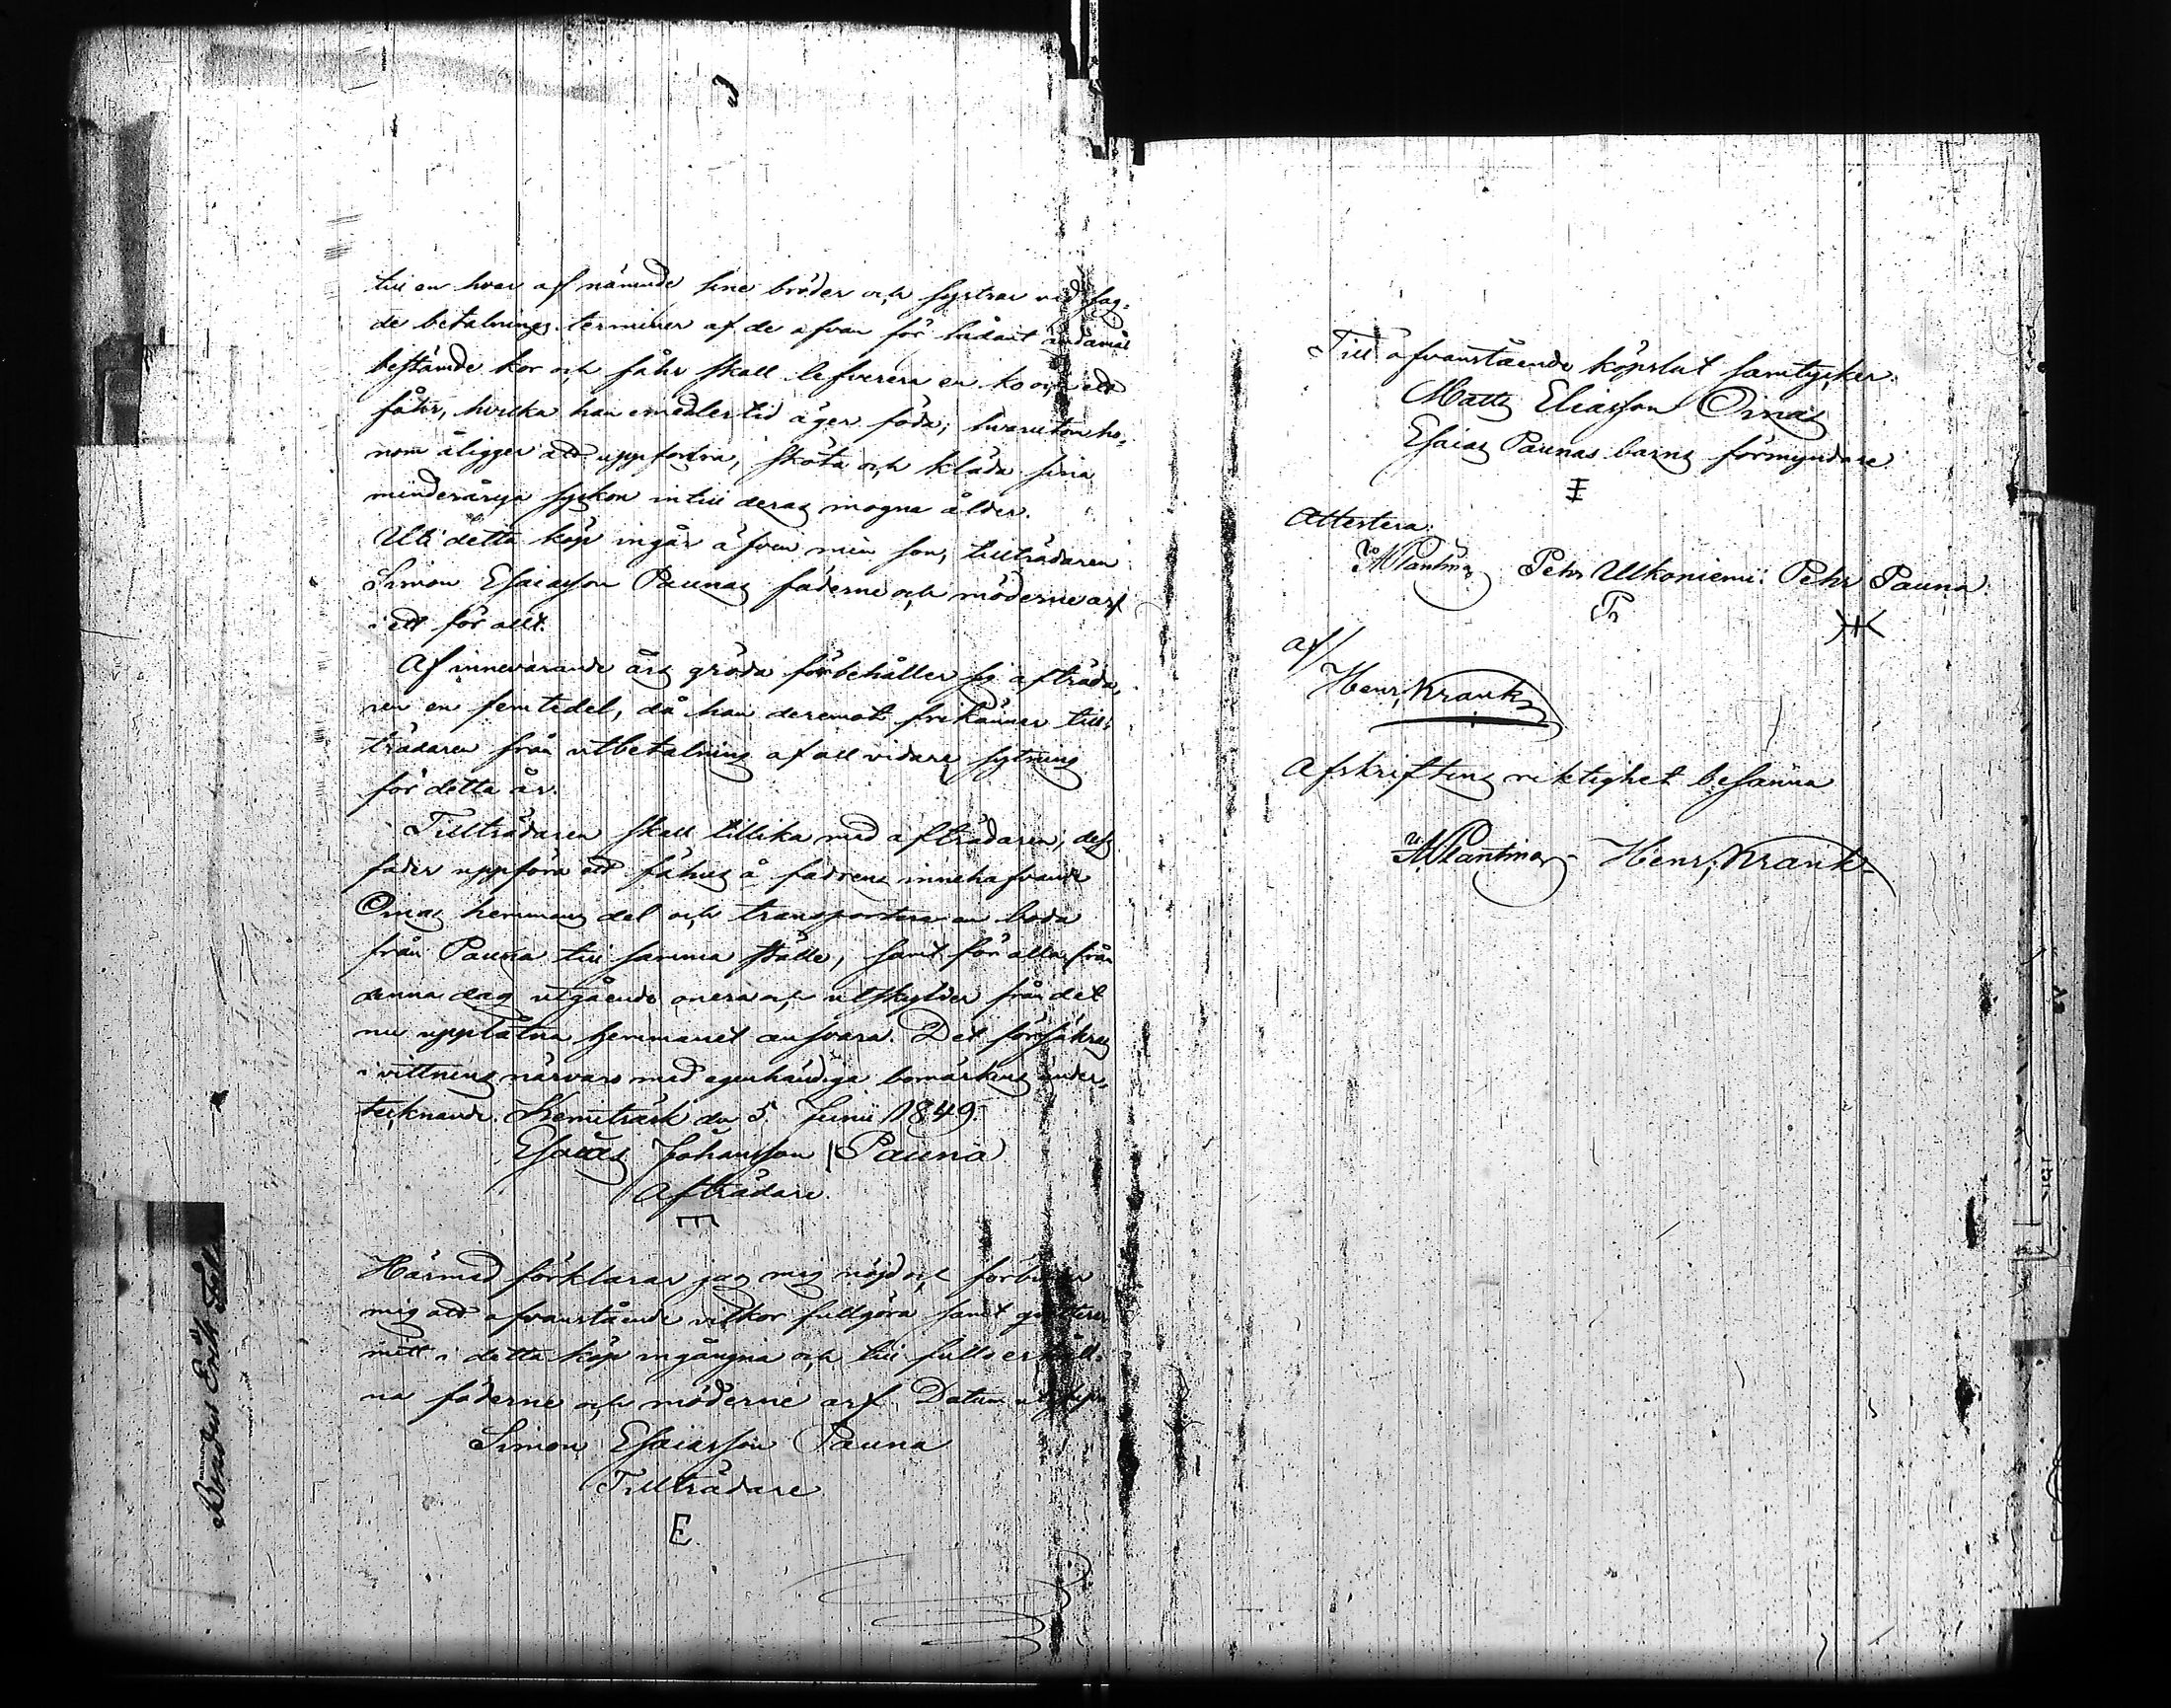 till en hvar af nämnde sine bröder och systrar vid sag-
de betalnings terminer af de ofvan för sådant ändamål
bestämde kor och fåhr skall lefverera en ko och ett
fåhr, hvilka han emedlertid äger föda; hvarutom ho-
nom åligger att uppfostra, sköta och kläda sina
minderåriga syskon intill deras mogna ålder.
Uti detta köp ingår äfven min son, tillträdaren
Simon Esaiasson Paunas fäderne och möderne arf
i ett för allt.
Af innevarande års gröda förbehåller sig afträda-
ren en femtedel, då han deremot frikänner till-
trädaren från utbetalning af all vidare sytning
för detta år.
Tillträdaren skall tillika med afträdaren, dess
fader uppföra ett fähus å fadrens innehafvande
Oinas hemmans del och transportera en boda
från Pauna till samma ställe, samt för alla från
denna dag utgående onera och utskylder från det
nu upplåtna hemmanet ansvara. Det försäkras
i vittnens närvaro med egenhändiga bomärkens under-
tecknande. Kemiträsk den 5 Junii 1849.
Esaias Johansson Pauna
Afträdare.
Härmed förklarar jag mig nöjd och förbinder
mig att ofvanstående vilkor fullgöra samt qvitterar
mitt i detta köp ingångna och till fullo erhåll-
na fäderne och möderne arf. Datum utsupra
Simon Esaiasson Pauna
Tillträdare
E
Till ofvanstående köpslut samtycker.
Matts Eliasson Oinas
Esaias Paunas barns förmyndare.
Attestera:
M Plantin Pehr Ulkoniemi: Pehr Pauna:
af/
Henr, Krank
Afskriftens riktighet besanna
M Plantin Henr, Krank
Bonden Erik